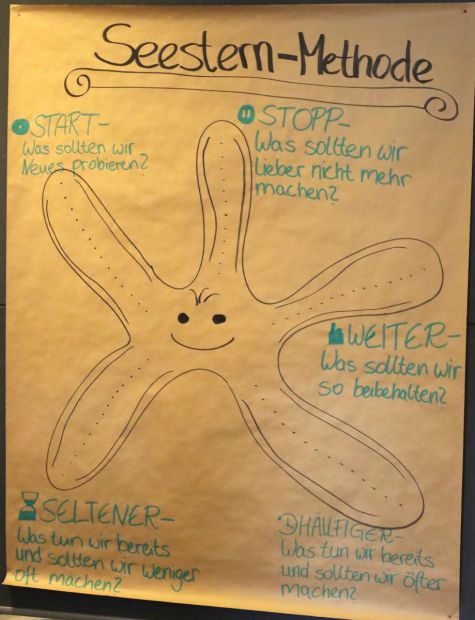 Seestern-Methode
START-
Was sollten wir
Neues probieren?
STOPP-
Was sollten wir
lieber nicht mehr
machen?
WEITER-
Was sollten wir
so beibehalten?
SELTENER-
Was tun wir bereits
und sollten wir weniger
oft machen?
HÄUFIGER-
Was tun wir bereits
und sollten wir öfter
machen?